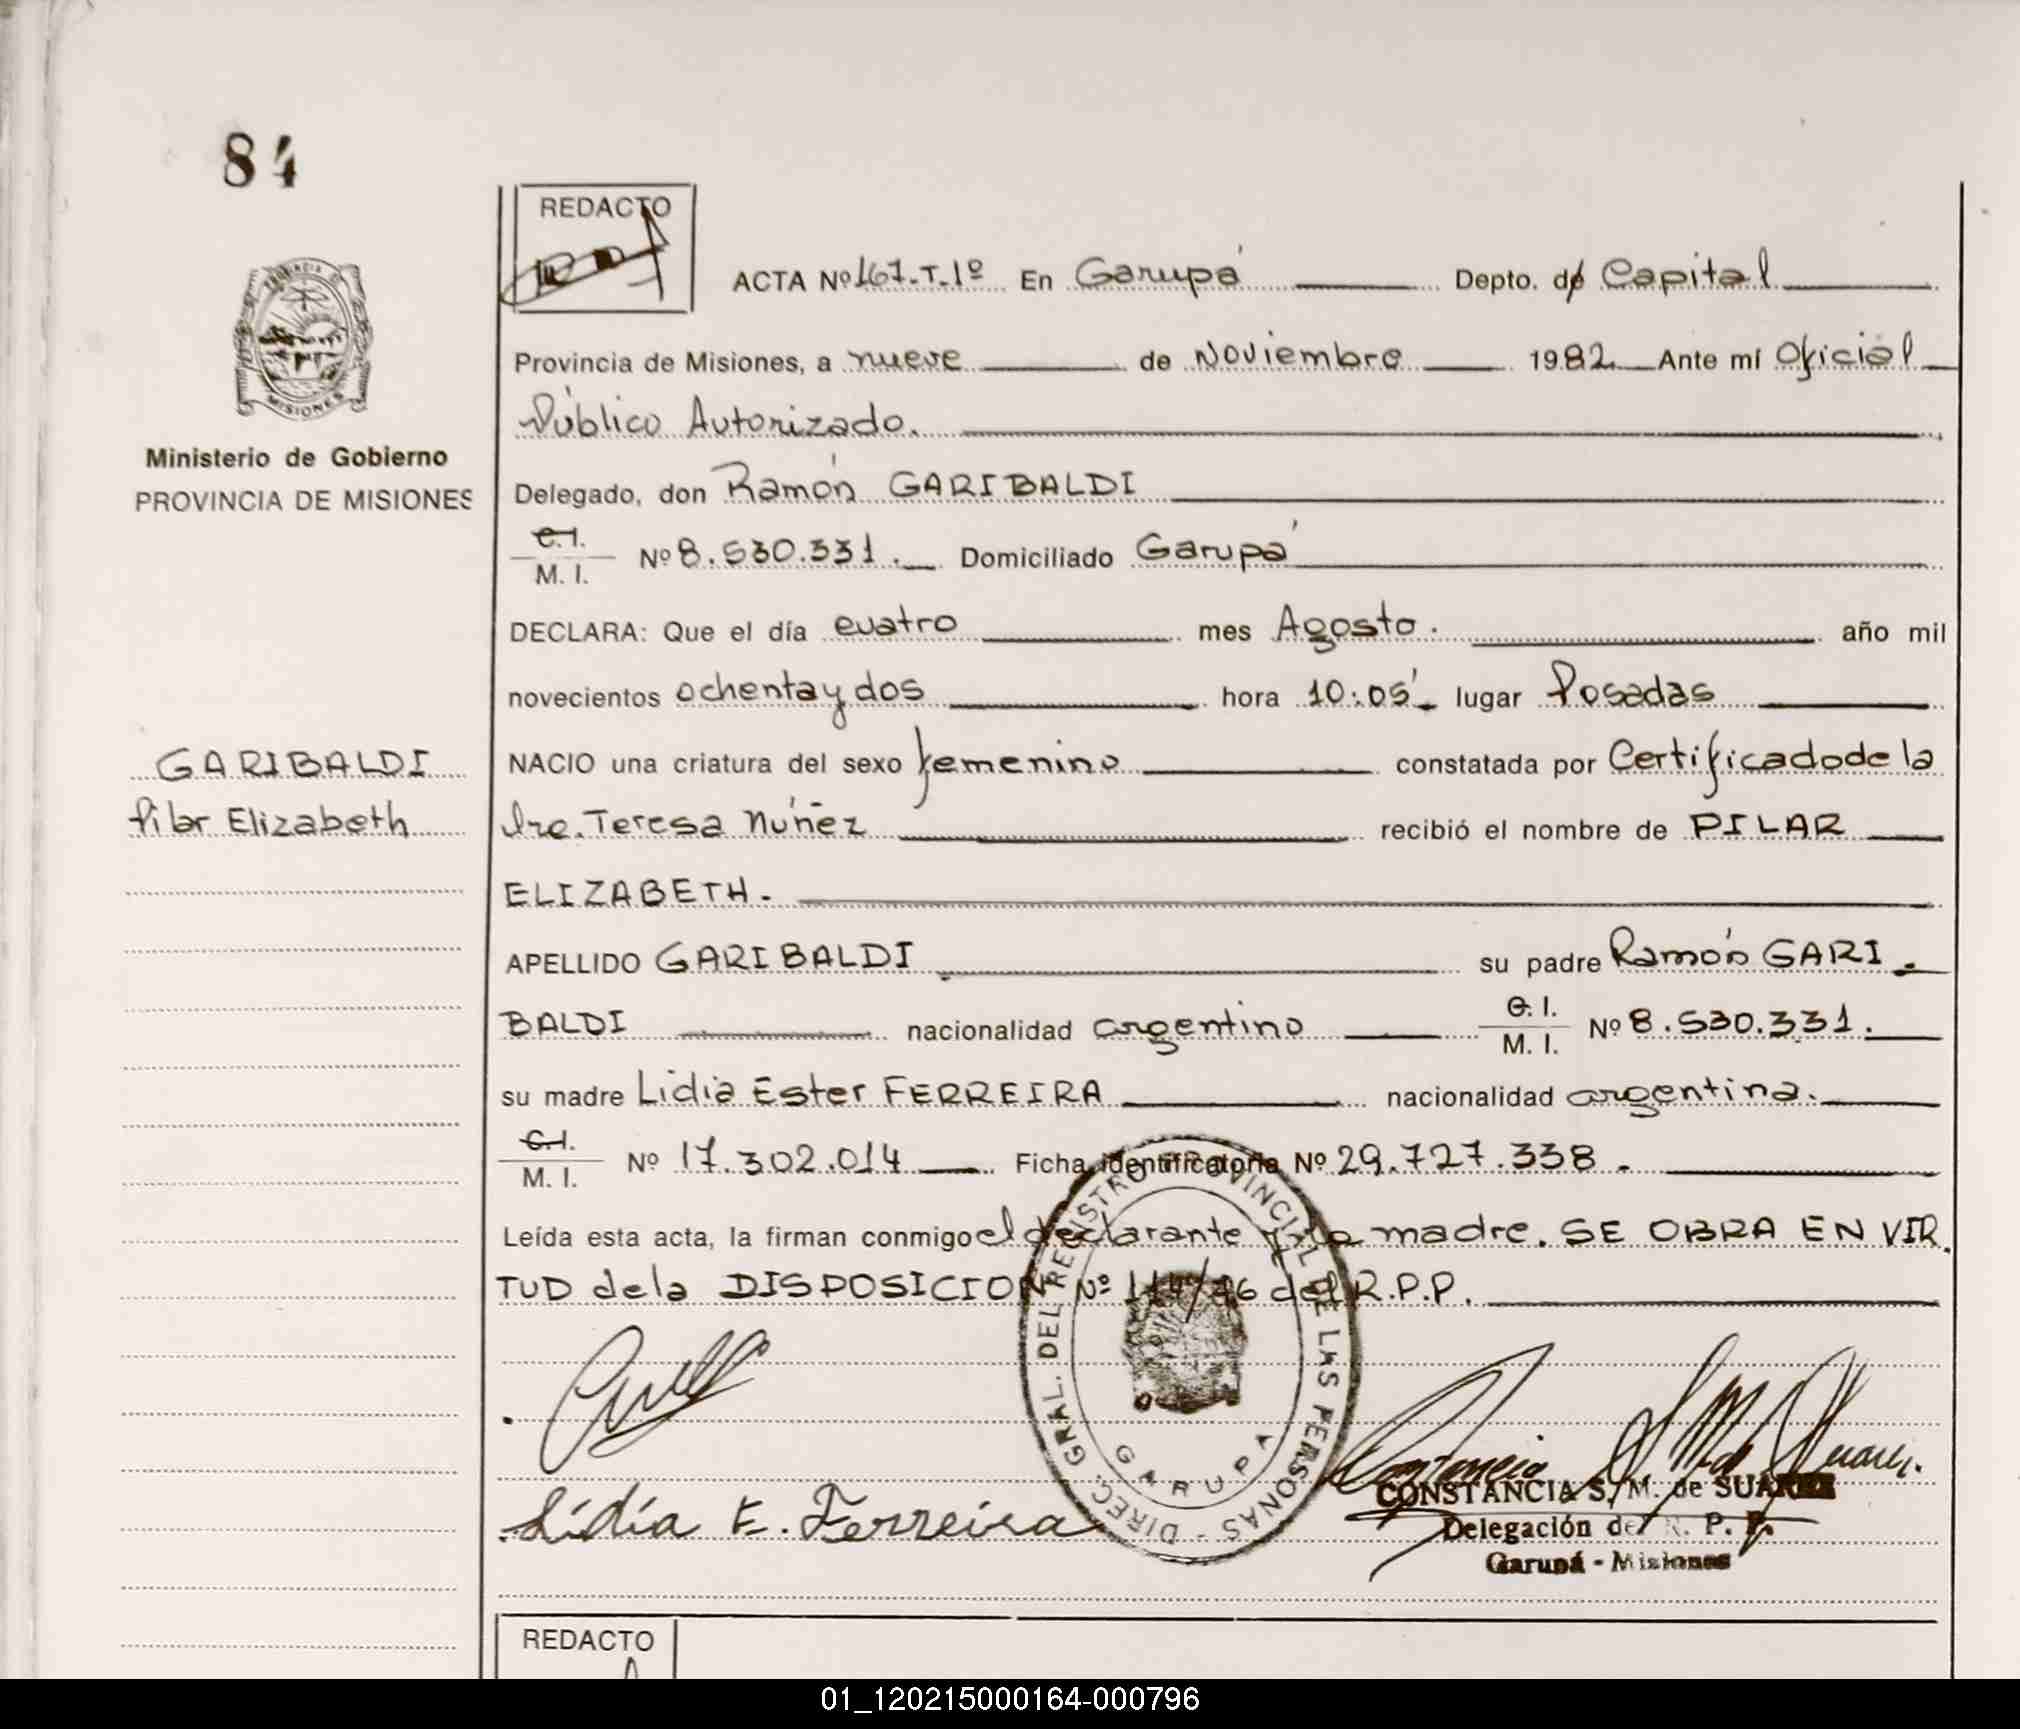 84
REDACTO
ACTA Nº 167.T.1º En Garupá Depto. de Capital
Provincia de Misiones, a nueve de Noviembre 1982 Ante mí Oficial
Público Autorizado.
Ministerio de Gobierno
PROVINCIA DE MISIONES
Delegado, don Ramón GARIBALDI
C.I.
M. I. Nº 8.530.331. Domiciliado Garupá
DECLARA: Que el día cuatro mes Agosto. año mil
novecientos ochenta y dos hora 10:05' lugar Posadas
GARIBALDI
Pilar Elizabeth
NACIO una criatura del sexo femenino constatada por Certificado de la
Dra. Teresa Núñez recibió el nombre de PILAR
ELIZABETH.
APELLIDO GARIBALDI su padre Ramón GARI
BALDI nacionalidad argentino C. I.
M. I. Nº 8.530.331.
su madre Lidia Ester FERREIRA nacionalidad argentina.
C.I.
M. I. Nº 17.302.014 Ficha identificatoria Nº 29.727.338.
Leída esta acta, la firman conmigo el declarante y la madre. SE OBRA EN VIR
TUD de la DISPOSICION Nº 114/76 del R.P.P.
DIREC. GRAL. DEL REGISTRO PROVINCIAL DE LAS PERSONAS -
GARUPA
MISIONES
Lidia E. Ferreira
CONSTANCIA S. M. de SUAREZ
Delegación del R. P. P.
Garupá - Misiones
REDACTO
01_120215000164-000796